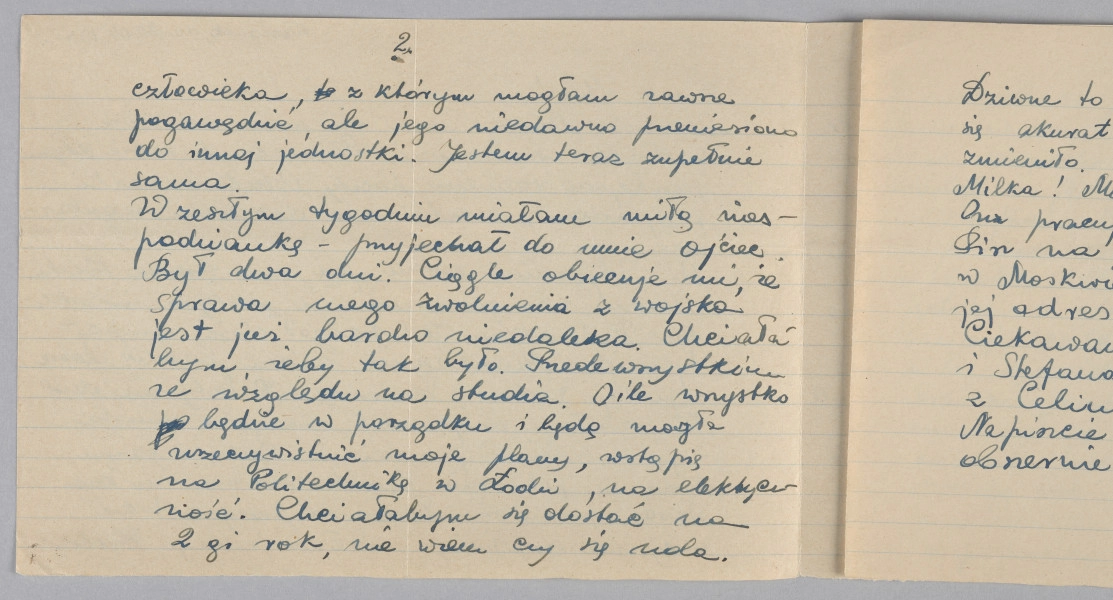 2.
człowieka, z którym mogłam zawsze
pogawędzić, ale jego niedawno przeniesiono
do innej jednostki. Jestem teraz zupełnie
sama.
W zeszłym tygodniu miałam miłą nies-
podziankę - przyjechał do mnie ojciec.
Był dwa dni. Ciągle obiecuje mi, że
sprawa mego zwolnienia z wojska
jest już bardzo niedaleka. Chciała
bym, żeby tak było. Przedewszystkim
ze względu na studia. O ile wszystko
będzie w porządku i będę mogła
urzeczywistnić moje plany, wstąpię
na Politechnikę w Łodzi, na elektrycz
ność. Chciałabym się dostać na
2 gi rok, nie wiem czy się uda.
Dziwne to
się akurat
zmieniło.
Milka! M
Ona pracuj
na
w Moskwi
jej adres
Ciekawa
i Stefana
z Celin
Napiszcie
obszernie